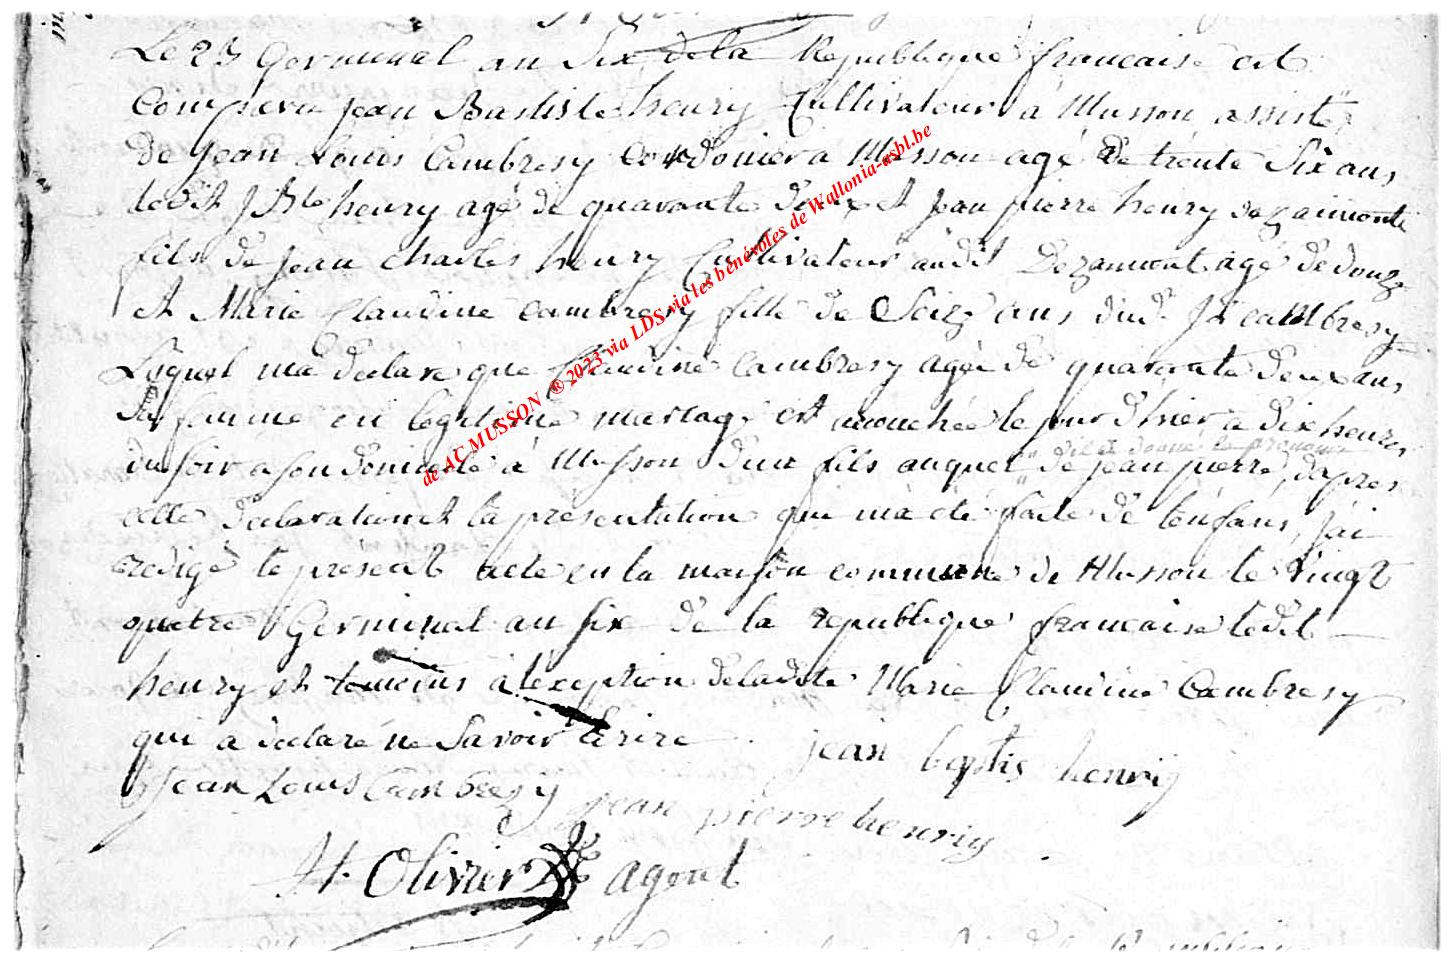 Le 23 Germinal an Six de la Republique francaise est
Comparu jean Baptiste henry Cultivateur a Musson assisté
de jean Louis Cambresy Cordonier a Musson agé de trente Six ans
ledit J Bte henry agé de quarante deux et jean pierre henry
fils de jean Charles henry Cultivateur audit agé de douze
et Marie Claudine Cambresy fille de Seize ans dud. Cambresy
Lequel m'a declaré que Claudine Cambresy agée de quarante deux ans
Sa femme en legitime mariage est accouchée le jour d'hier a dix heures
du soir a son domicile a Musson d'un fils auquel
"il a donné le prenom"
de jean pierre, d'apres
cette declaration et la présentation qui m'a été faite de l'enfans, j'ai
redigé le present acte en la maison commune de Musson le vingt
quatre Germinal an six de la republique francaise ledit
henry et temoins à l'exeption de ladite Marie Claudine Cambresy
qui a declaré ne Savoir Ecrire
jean baptis henriy
Jean Louis Cambresy
jean pierre henriy
H. Olivier agent
de AC MUSSON ® 2023 via LDS via les bénévoles de Wallonia-asbl.be